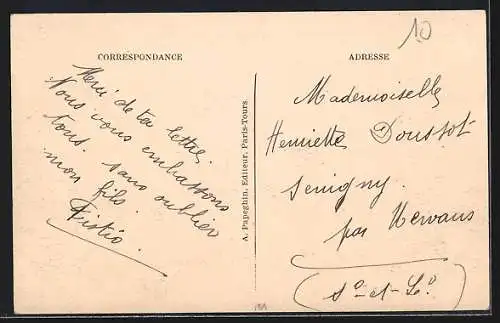 CORRESPONDANCE
Merci de ta lettre,
Nous vous embrassons
tous. sans oublier
mon fils.
A. Papeghin, Editeur, Paris-Tours
ADRESSE
10
Mademoiselle
Henriette Doussot
Senigny.
par Nevaus
(Sne-et-Lre)